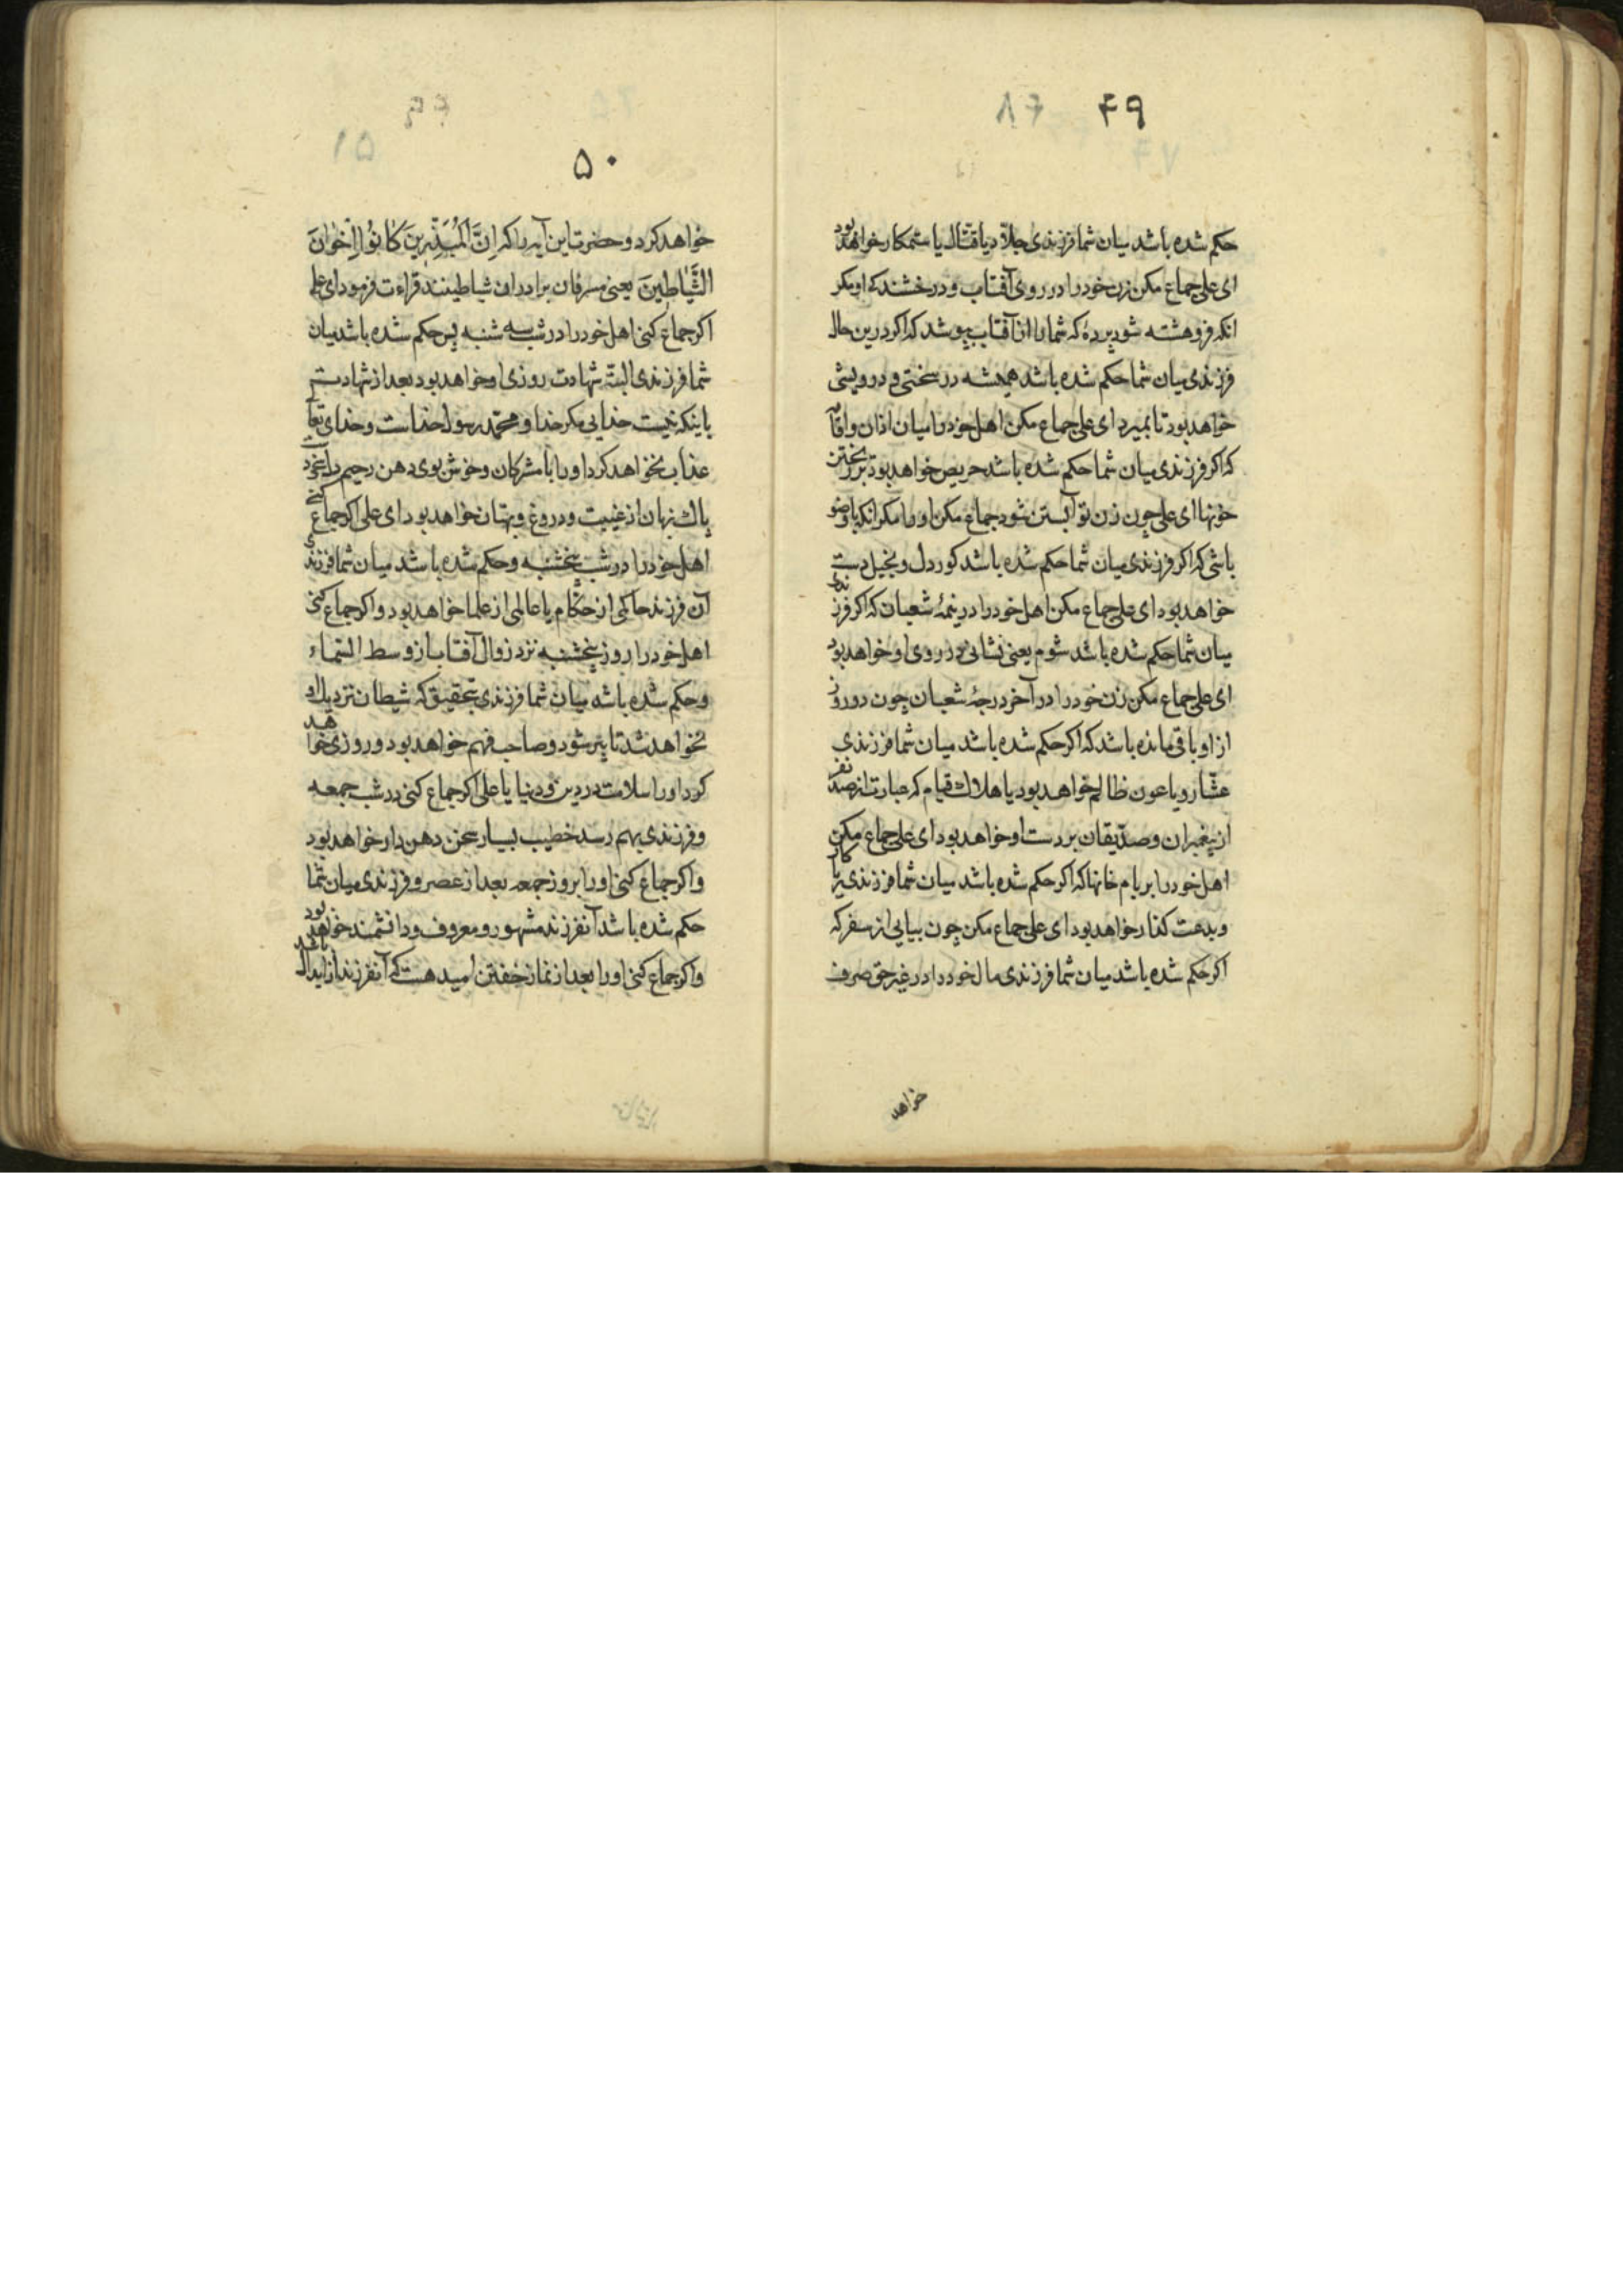 ۴۹
حکم شده باشد میان شما فرزندی جلاد یا قتال یا ستمکار خواهد بود
ای علی جماع مکن زن خود را در روی آفتاب و درخشندکی او مکر
انکه فروهشته شود پردهٔ که شما را از آفتاب پوشد که اکر درین حال
فرزندی میان شما حکم شده باشد همیشه در سختی و درویشی
خواهد بود تا بمیرد ای علی جماع مکن اهل خود را میان اذان و اقامه
که اکر فرزندی میان شما حکم شده باشد حریص خواهد بود بر ریختن
خونها ای علی چون زن تو آبستن شود جماع مکن او را مکر انکه با وضو
باشی که اکر فرزندی میان شما حکم شده باشد کور دل و بخیل دست
خواهد بود ای علی جماع مکن اهل خود را در نیمهٔ شعبان که اکر فرزندی
میان شما حکم شده باشد شوم یعنی نشانی در روی او خواهد بود
ای علی جماع مکن زن خود را در آخر درجهٔ شعبان چون دو روز
از او باقی مانده باشد که اکر حکم شده باشد میان شما فرزندی
عشّار و یا عون ظالم خواهد بود یا هلاک قیام که عبارت از صد نفر
از پیغمبران و صدّیقان بر دست او خواهد بود ای علی جماع مکن
اهل خود را بر بام خانها که اکر حکم شده باشد میان شما فرزندی ریاکار
و بدعت کذار خواهد بود ای علی جماع مکن چون بیایی از سفر که
اکر حکم شده باشد میان شما فرزندی مال خود را در غیر حق صرف
خواهد
۵۰
خواهد کرد و حضرت این آیه را که اِنَّ الْمُبَذِّرِینَ کٰانُوا اِخْوٰانَ
الشَّیٰاطِینَ یعنی مسرفان برادران شیاطینند قراءت فرمود ای علی
اکر جماع کنی اهل خود را در شب سه شنبه پس حکم شده باشد میان
شما فرزندی البته شهادت روزی او خواهد بود بعد از شهادت
باینکه نیست خدایی مکر خدا و محمّد رسول خداست و خدای تعالی
عذاب نخواهد کرد او را با مشرکان و خوش بوی دهن رحیم دل
پاک زبان از غیبت و دروغ و بهتان خواهد بود ای علی اکر جماع کنی
اهل خود را در شب پنجشنبه و حکم شده باشد میان شما فرزندی
آن فرزند حاکمی از حکّام یا عالمی از علما خواهد بود و اکر جماع کنی
اهل خود را روز پنجشنبه نزد زوال آفتاب از وسط السّماء
و حکم شده باشد میان شما فرزندی بتحقیق که شیطان نزدیک او
نخواهد شد تا پیر شود و صاحب فهم خواهد بود و روزی خواهد
کرد او را سلامت در دین و دنیا یا علی اکر جماع کنی در شب جمعه
و فرزندی بهم رسد خطیب بسیار سخن دهن دار خواهد بود
و اکر جماع کنی او را بروز جمعه بعد از عصر و فرزندی میان شما
حکم شده باشد آنفرزند مشهور و معروف و دانشمند خواهد بود
و اکر جماع کنی او را بعد از نماز خفتن امید هست که آنفرزند از ابدال باشد